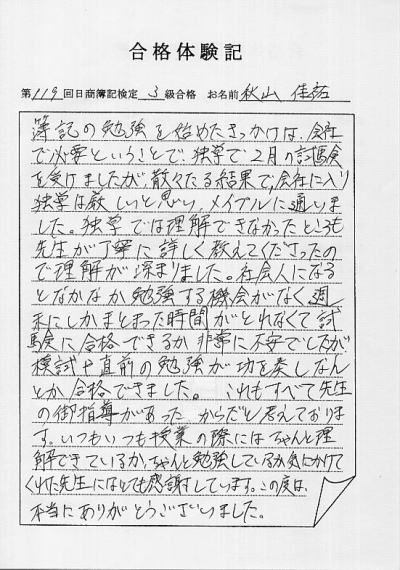 合格体験記
第119回日商簿記検定 3級合格 お名前 秋山 佳祐
簿記の勉強を始めたきっかけは、会社
で必要ということで、独学で2月の試験
を受けましたが、散々たる結果で、会社に入り
独学は厳しいと思い、メイプルに通いま
した。独学では理解できなかったところも
先生が丁寧に詳しく教えてくださったの
で理解が深まりました。社会人になる
となかなか勉強する機会がなく週
末にしかまとまった時間がとれなくて試
験に合格できるか非常に不安でしたが
模試や直前の勉強が功を奏しなん
とか合格できました。 これもすべて先生
の御指導があったからだと考えておりま
す。いつもいつも授業の際にはちゃんと理
解できているか、ちゃんと勉強しているか気にかけて
くれた先生にはとても感謝しています。この度は、
本当にありがとうございました。